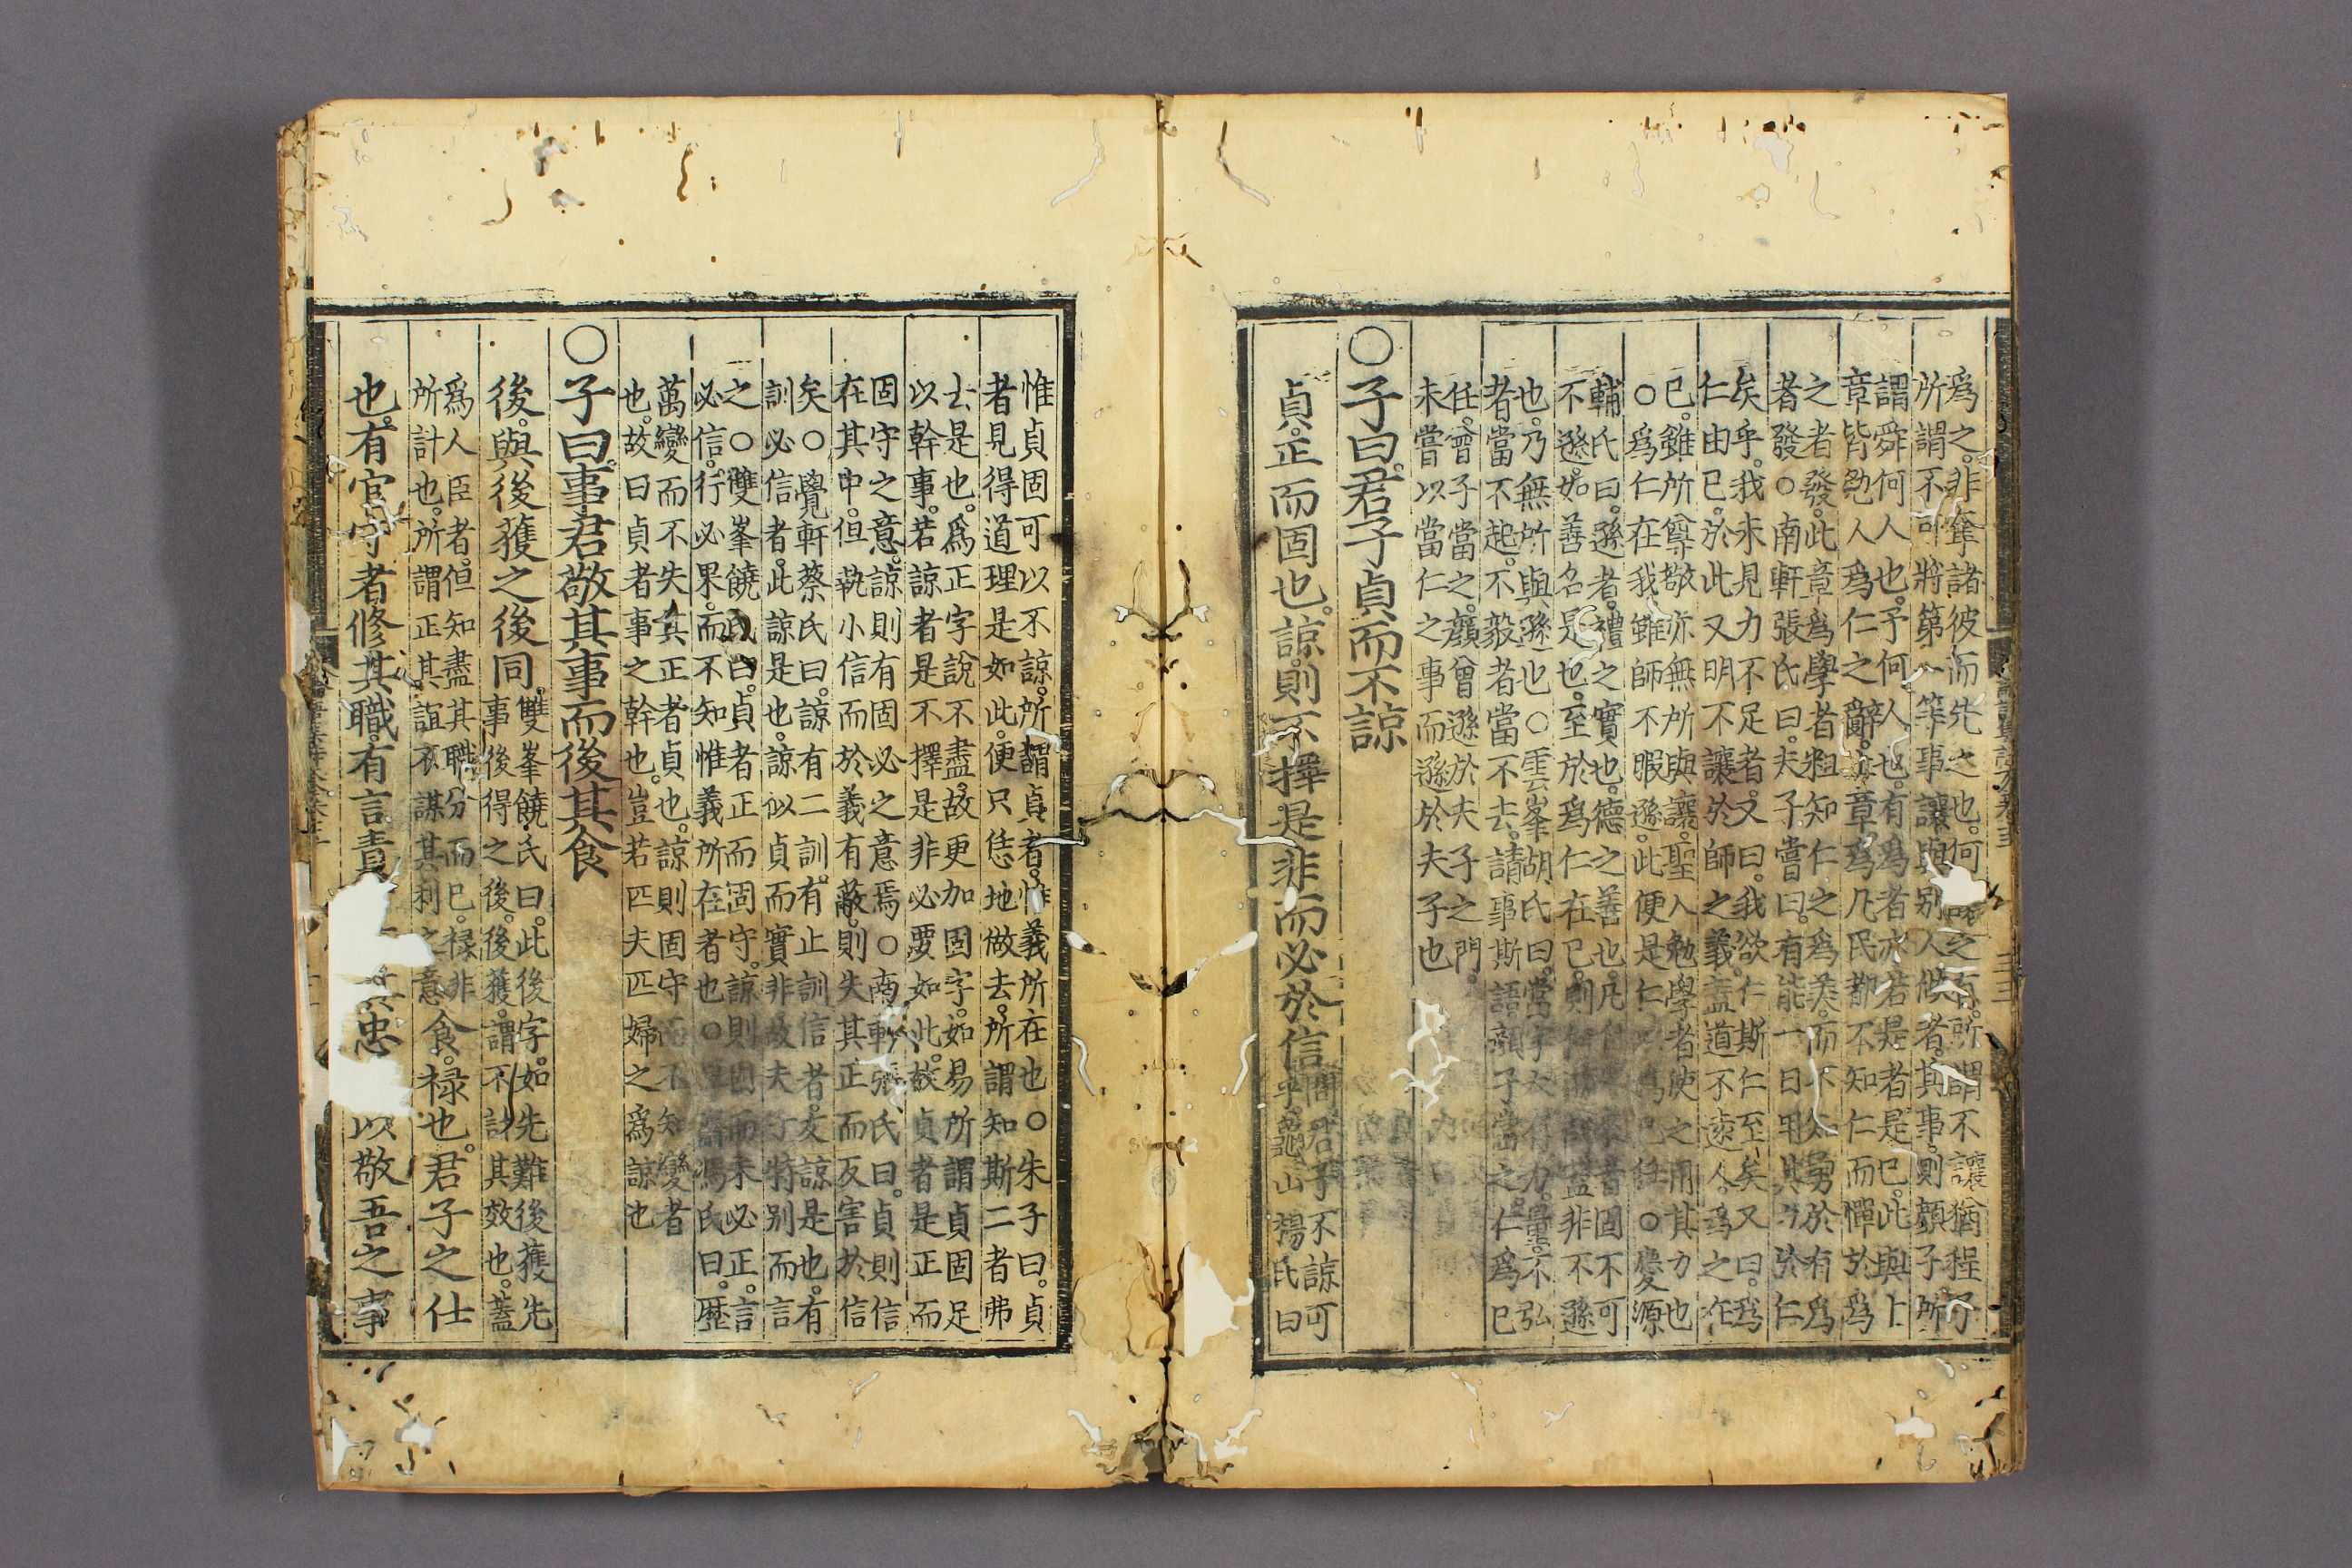 爲之非奪諸彼而先之也何之有所謂不讓猶程子
所謂不可將第一等事讓與别人做者其事則顔子所
謂舜何人也予何人也有爲者亦若是者是已此與上
章皆勉人爲仁之辭上章爲凡民都不知仁而憚於爲
之者發此章爲學者粗知仁之爲美而不知勇於有爲
者發○南軒張氏曰夫子嘗曰有能一日用其力於仁
矣乎我未見力不足者又曰我欲仁斯仁至矣又曰爲
仁由已於此又明不讓於師之義蓋道不遠人爲之在
已雖所尊敬亦無所與讓聖人勉學者使之用其力也
○爲仁在我雖師不暇遜此便是仁爲已任○慶源
輔氏曰遜者禮之實也德之善也凡者固不可
不遜如善名是也至於爲仁在已則蓋非不遜
也乃無所與遜也○雲峯胡氏曰當字大有力量不弘
者當不起不毅者當不去請事斯語顔子當之仁爲已
任曾子當之顔曾遜於夫子之門
未嘗以當仁之事而遜於夫子也
○子曰君子貞而不諒
貞正而固也諒則不擇是非而必於信問君子不諒可
乎龜山楊氏曰
惟貞固可以不諒所謂貞者惟義所在也○朱子曰貞
者見得道理是如此便只恁地做去所謂知斯二者弗
去是也爲正字說不盡故更加固字如易所謂貞固足
以幹事若諒者是不擇是非必要如此故貞者是正而
固守之意諒則有固必之意焉○南軒張氏曰貞則信
在其中但執小信而於義有蔽則失其正而反害於信
矣○覺軒蔡氏曰諒有二訓有止訓信者友諒是也有
訓必信者此諒是也諒似貞而實非故夫子特别而言
之○雙峯饒氏曰貞者正而固守諒則固而未必正言
必信行必果而不知惟義所在者也○厚齋馮氏曰歷
萬變而不失其正者貞也諒則固守而不知變者
也故曰貞者事之幹也豈若匹夫匹婦之爲諒也
○子曰事君敬其事而後其食
後與後獲之後同雙峯饒氏曰此後字如先難後獲先
事後得之後後獲謂不計其效也蓋
爲人臣者但知盡其職分而已禄非
所計也所謂正其誼不謀其利之意食禄也君子之仕
也有官守者修其職有言責忠以敬吾之事